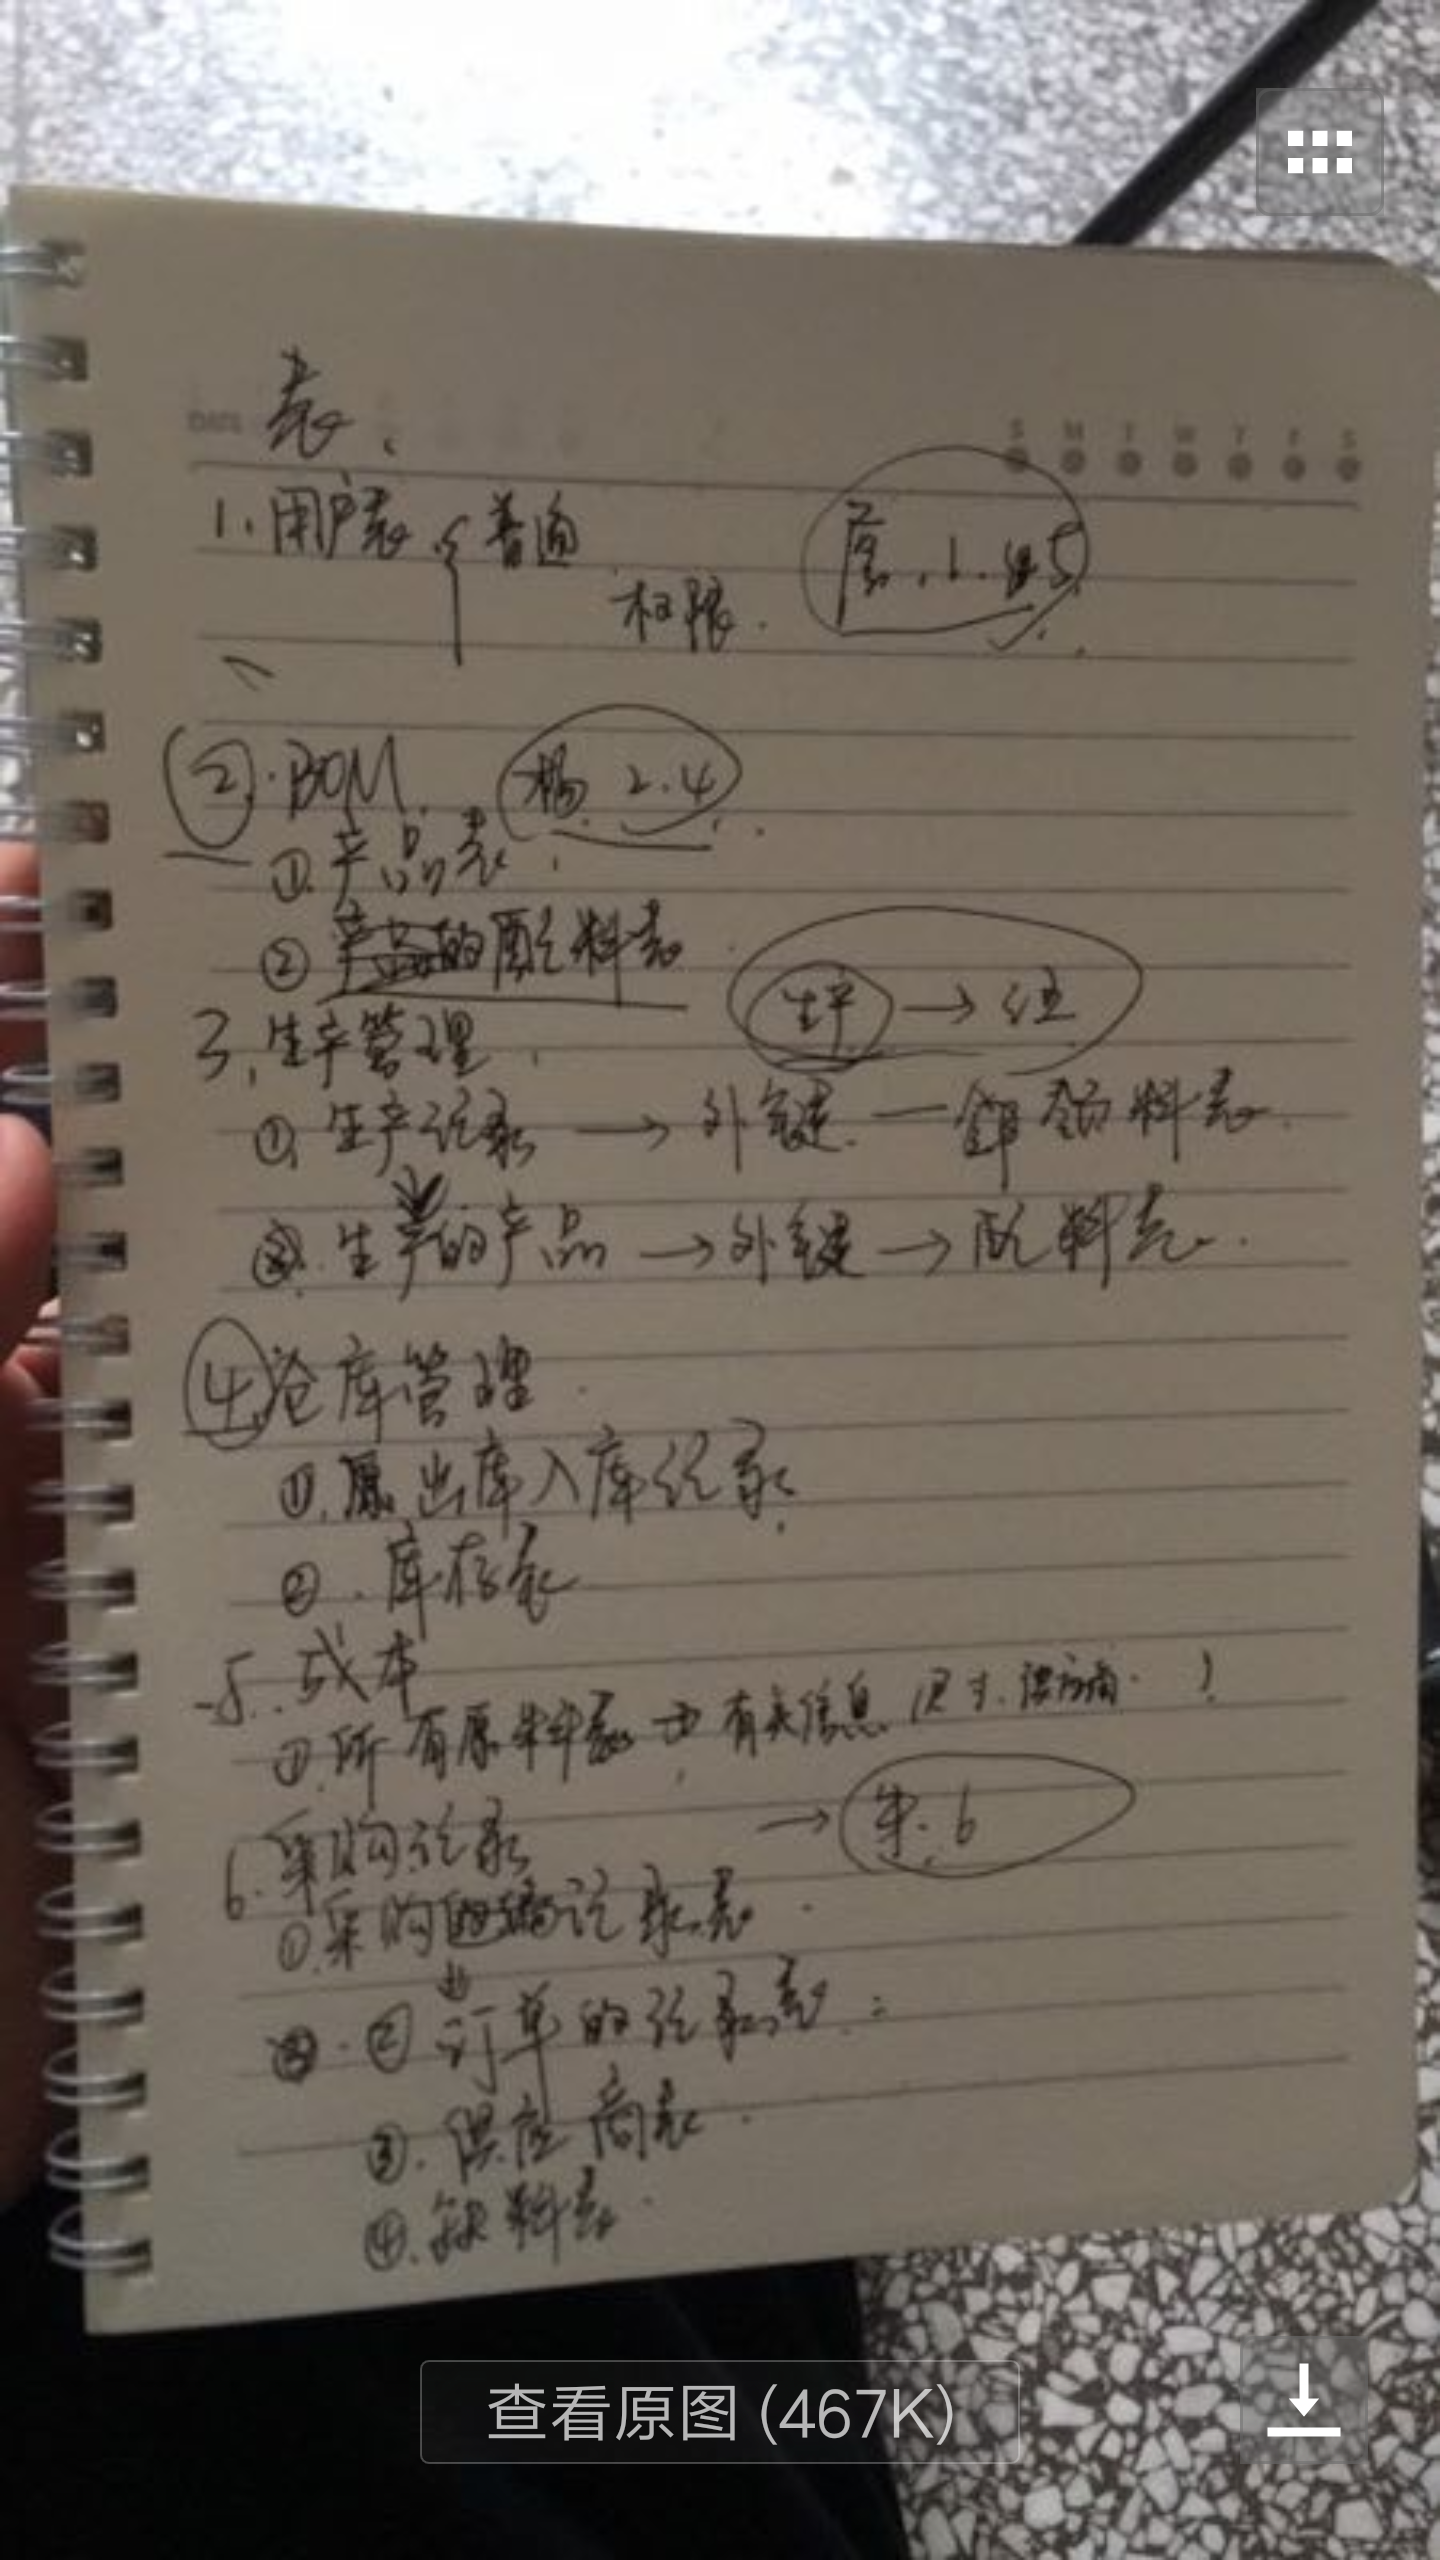 表、
DATE
S M T W T F S
1. 用户表 普通
权限.
1. 5
②. BOM. 杨 2.4
① 产品表.
② 的配料表
3. 生产管理. 生产 →
① 生产记录 → 外键 — 领料表.
生产的产品 → 外键 → 配料表.
④ 仓库管理.
① 原 出库入库记录
② . 库存表
5. 成本
① 所有原料表 有关信息 供应商. )
6. 采购记录 → 朱. 6
① 采购 记录表.
② 订单的记录表.
③. 供应商表.
④. 缺料表.
查看原图 (467K)